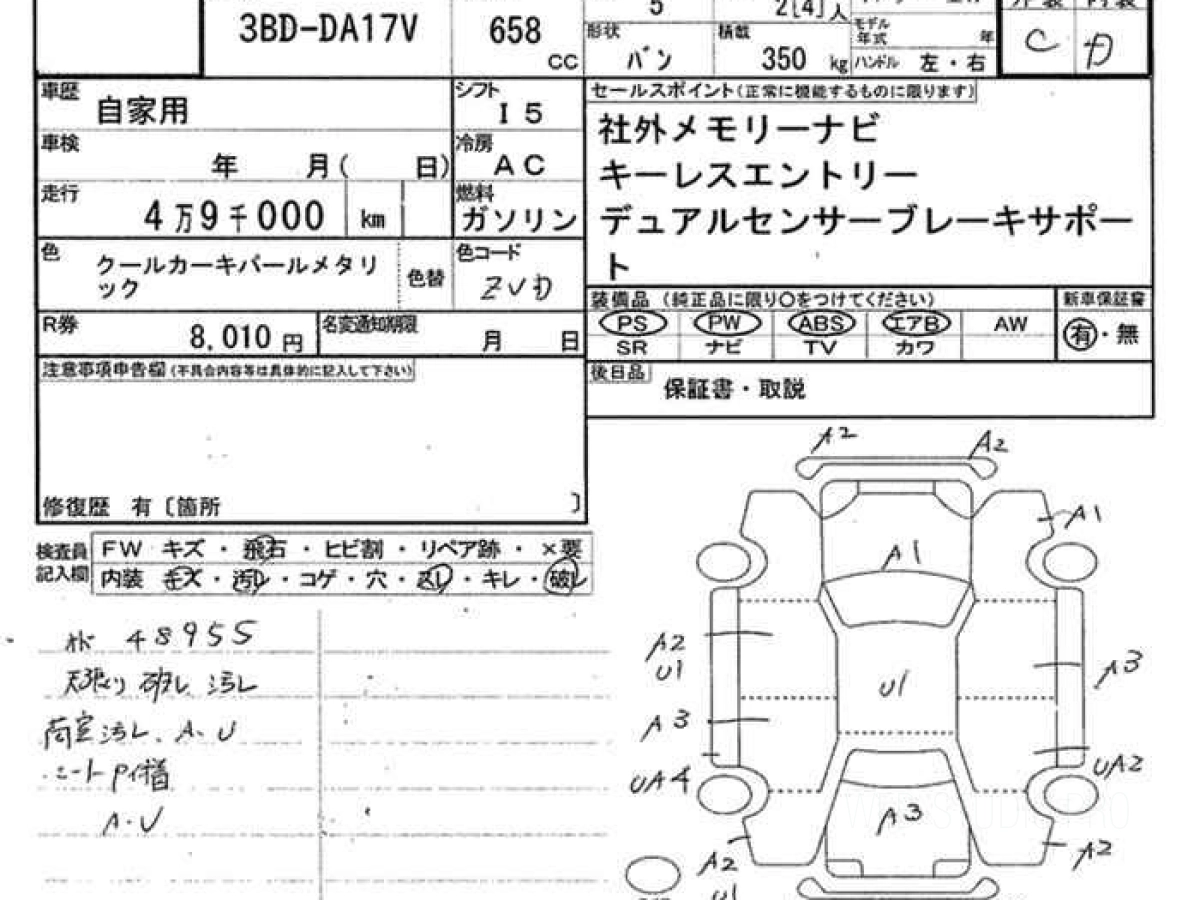 3BD-DA17V
658
CC
5
2[4]人
形状
バン
積載
350 kg
モデル年式 年
ハンドル 左・右
C D
車歴
自家用
シフト
I5
車検
年 月( 日)
冷房
AC
走行
4万9千000 km
燃料
ガソリン
色
クールカーキパールメタリ
ック
色替
色コード
ZVD
R券
8,010 円
名変通知期限
月 日
注意事項申告欄(不具合内容等は具体的に記入して下さい)
修復歴 有〔箇所 〕
セールスポイント(正常に機能するものに限ります)
社外メモリーナビ
キーレスエントリー
デュアルセンサーブレーキサポー
ト
装備品 (純正品に限り○をつけてください)
新車保証書
PS PW ABS エアB AW
SR ナビ TV カワ
有・無
後日品
保証書・取説
検査員
記入欄
FW キズ・飛石・ヒビ割・リペア跡・×要
内装 キズ・汚レ・コゲ・穴・スレ・キレ・破レ
48955
天張り 破レ 汚レ
荷室汚レ、A・U
A・U
A2
A2
A1
A1
A2
U1
U1
A3
A3
UA4
UA2
A3
A2
U1
A2